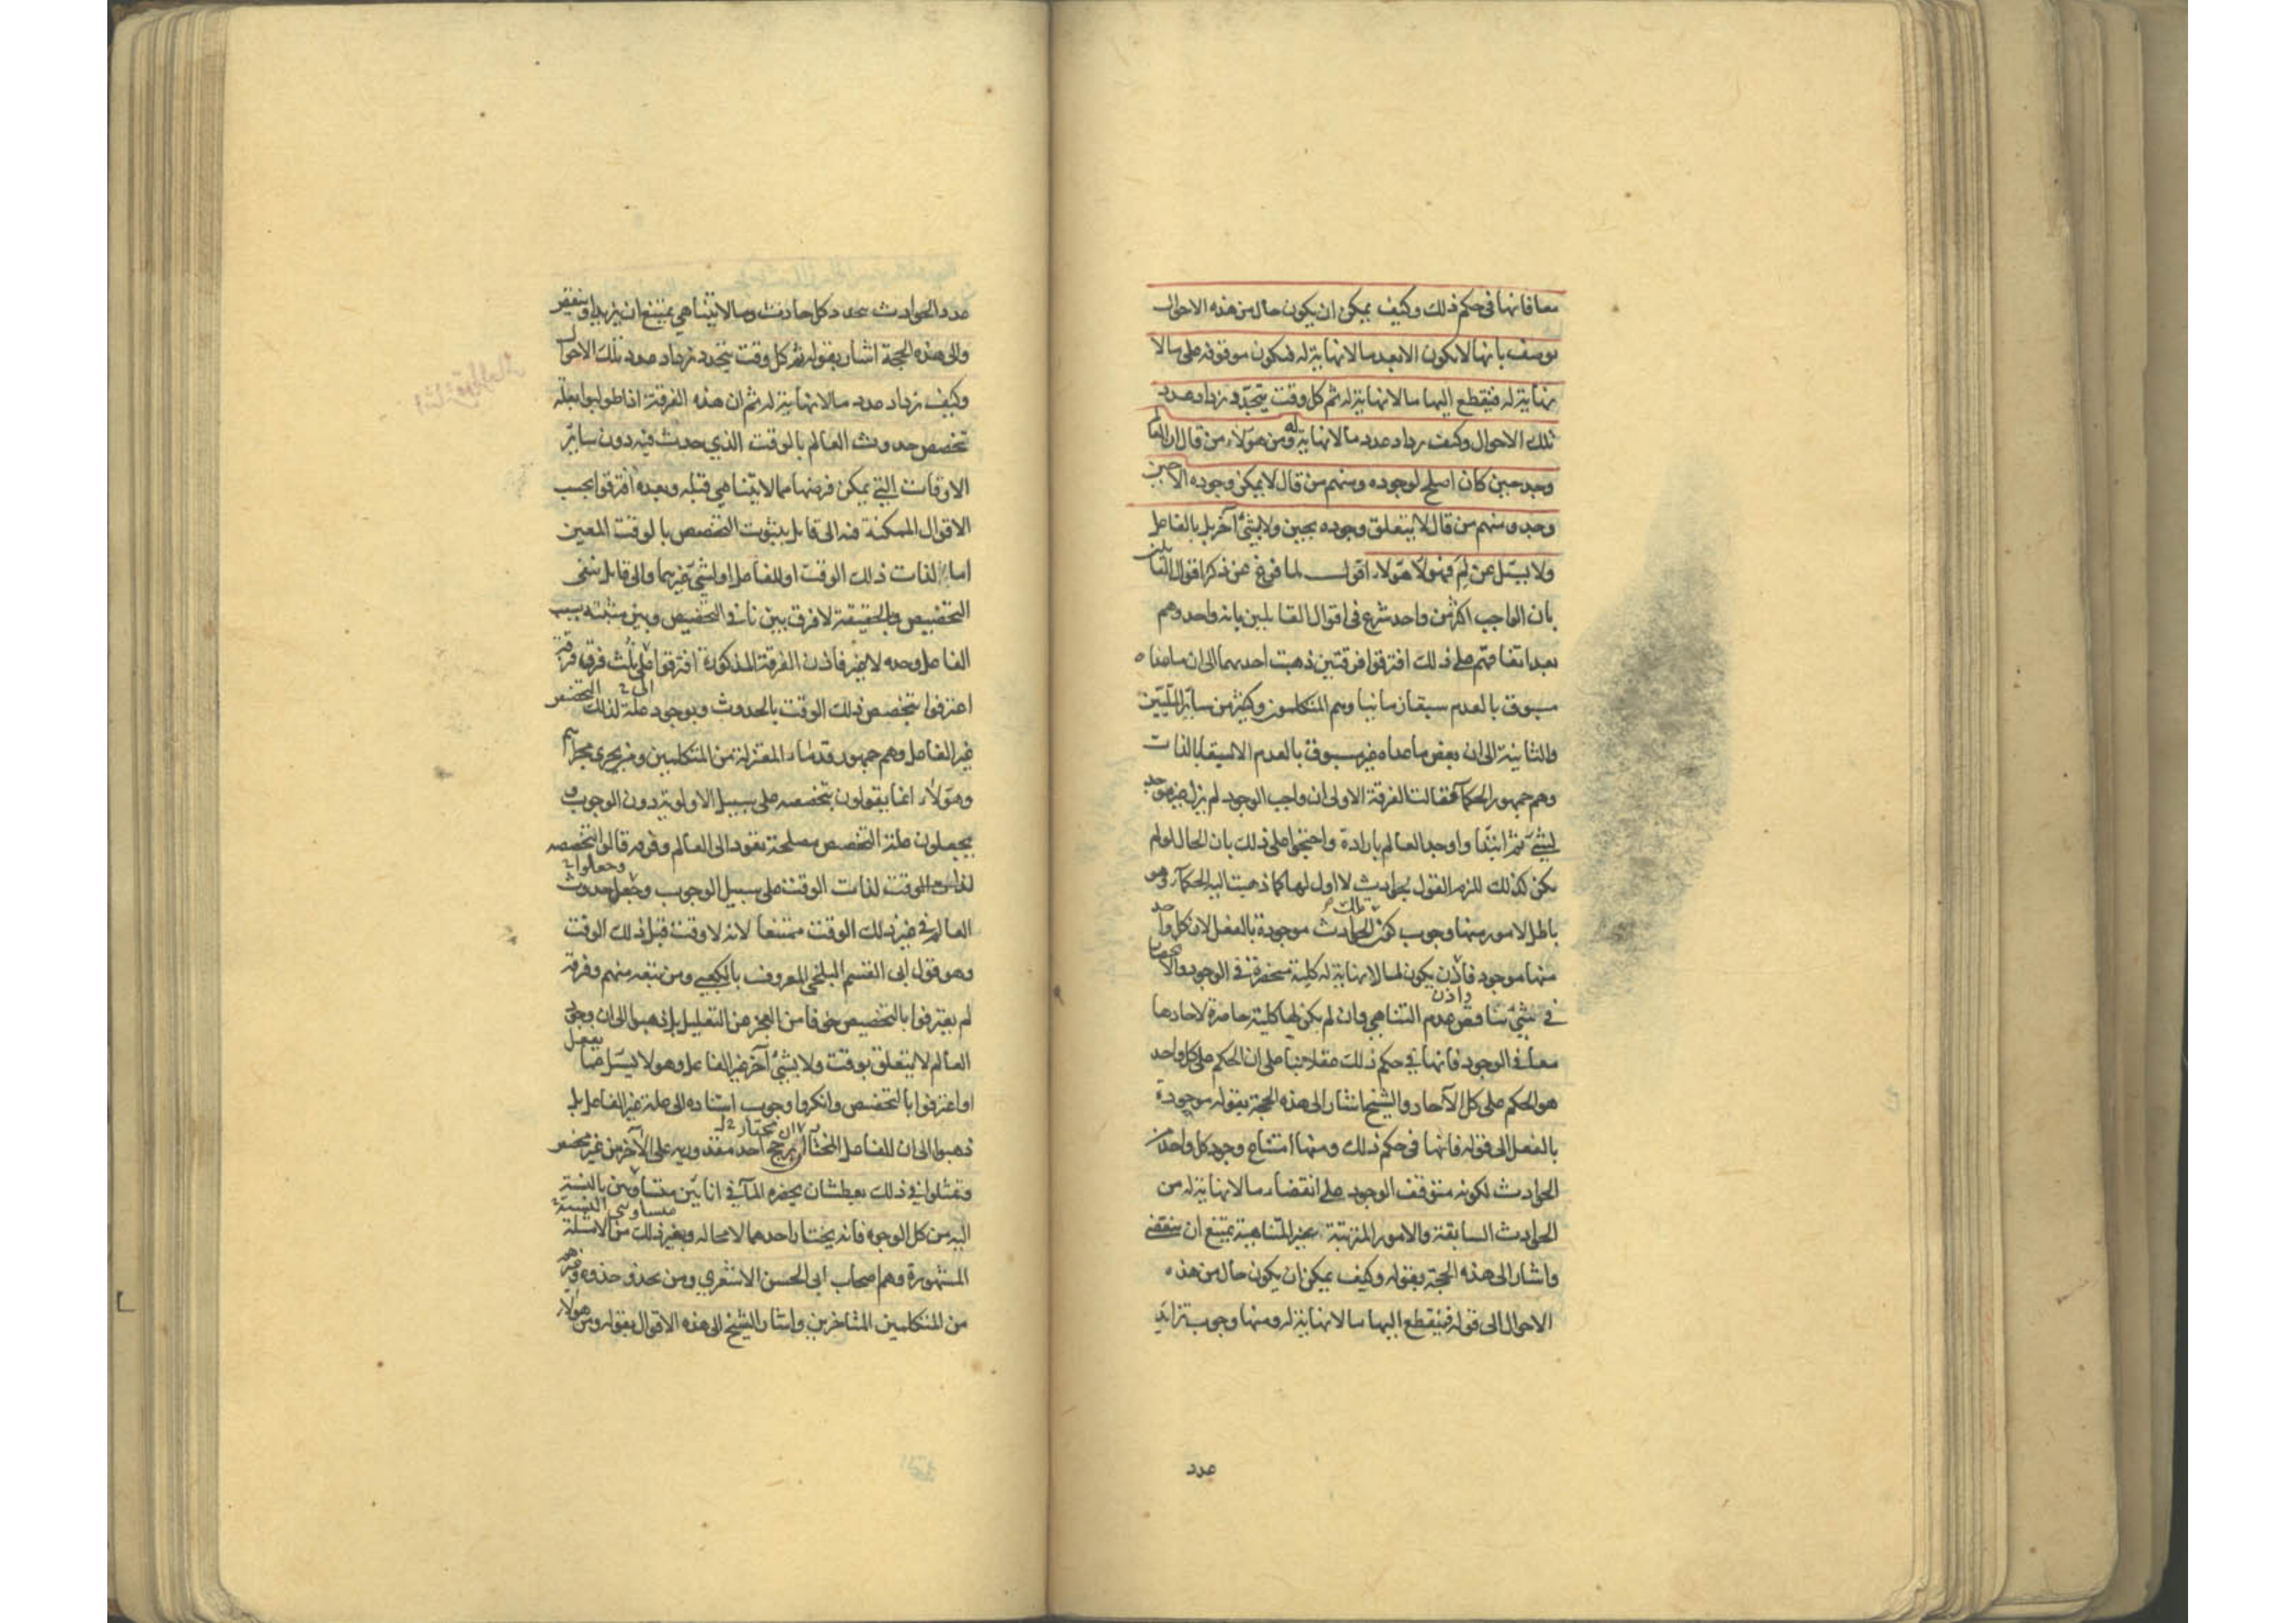 معا فانها فى حكم ذلك وكيف يمكن ان يكون حال من هذه الاحوال
توصف بانها لا يكون الا بعد ما لا نهاية له فيكون موقوفة على ما لا
نهاية له فيقطع اليها ما لا نهاية له ثم كل وقت يتجدد يزداد عدد
تلك الاحوال وكيف يزداد عدد ما لا نهاية له ومن هؤلاء من قال ان العالم
وجد حين كان اصلح لوجوده ومنهم من قال لا يمكن وجوده الا حين
وجد ومنهم من قال لا يتعلق وجوده بحين ولا بشئ آخر بل بالفاعل
ولا يسئل عن لم فهؤلاء هؤلاء اقول لما فرغ عن ذكر اقوال القائلين
بان الواجب اكثر من واحد شرع فى اقوال القائلين بانه واحد وهم
بعد اتفاقهم على ذلك افترقوا فرقتين ذهبت احديهما الى ان ما عداه
مسبوق بالعدم سبقا زمانيا وهم المتكلمون وكثير من سائر المليين
والثانية الى ان بعض ما عداه غير مسبوق بالعدم الا سبقا بالذات
وهم جمهور الحكماء فقالت الفرقة الاولى ان واجب الوجود لم يزل غير موجد
لشئ ثم ابتدا واوجد العالم بارادة واحتجوا على ذلك بان الحال لو لم
يكن كذلك للزم القول بحوادث لا اول لها كما ذهبت اليه الحكماء وهو
باطل لامور منها وجوب كون تلك الحوادث موجودة بالفعل لان كل واحد
منها موجود فاذن يكون لما لا نهاية له كلية منحصرة فى الوجود والانحصار
فى شئ يناقض عدم التناهى واذن وان لم يكن لها كلية حاصرة لاحادها
معا فى الوجود فانها فى حكم ذلك عقلا بناء على ان الحكم على كل واحد
هو الحكم على كل الآحاد والشيخ اشار الى هذه الحجة بقوله موجودة
بالفعل الى قوله فانها فى حكم ذلك ومنها امتناع وجود كل واحد من
الحوادث لكونه متوقف الوجود على انقضاء ما لا نهاية له من
الحوادث السابقة والامور المترتبة الغير المتناهية يمتنع ان ينقضى
واشار الى هذه الحجة بقوله وكيف يمكن ان يكون حال من هذه
الاحوال الى قوله فيقطع اليها ما لا نهاية له ومنها وجوب تزايد
عدد
عدد الحوادث بتجدد كل حادث وما لا يتناهى يمتنع ان يزيد او ينقص
والى هذه الحجة اشار بقوله ثم كل وقت يتجدد يزداد عدد تلك الاحوال
وكيف يزداد عدد ما لا نهاية له ثم ان هذه الفرقة اذا طولبوا بعلة
تخصص حدوث العالم بالوقت الذي حدث فيه دون سائر
الاوقات التي يمكن فرضها مما لا يتناهى قبله وبعده افترقوا بحسب
الاقوال الممكنة فيه الى قائل بثبوت التخصص بالوقت المعين
اما لذات ذلك الوقت او للفاعل او لشئ غيرهما والى قائل بنفى
التخصيص وبالحقيقة لا فرق بين نافى التخصيص وبين مثبته بسبب
الفاعل وحده لا غير فاذن الفرقة المذكورة افترقوا الى ثلث فرق فرقة
اعترفوا بتخصص ذلك الوقت بالحدوث وبوجود علة لذلك التخصص
غير الفاعل وهم جمهور قدماء المعتزلة من المتكلمين ومن يجرى مجراهم
وهؤلاء انما يقولون بتخصصه على سبيل الاولوية دون الوجوب و
يجعلون علة التخصص مصلحة تعود الى العالم وفرقة قالوا بتخصصه
لذات الوقت على سبيل الوجوب وجعلوا حدوث
العالم فى غير ذلك الوقت ممتنعا لانه لا وقت قبل ذلك الوقت
وهو قول ابى القسم البلخى المعروف بالكعبي ومن تبعه منهم وفرقة
لم يعترفوا بالتخصيص خوفا من العجز عن التعليل بل ذهبوا الى ان وجود
العالم لا يتعلق بوقت ولا بشئ آخر غير الفاعل وهو لا يسئل عما يفعل
او اعترفوا بالتخصص وانكروا وجوب استناده الى علة غير الفاعل بل
ذهبوا الى ان للفاعل المختار ان يختار احد مقدوريه على الآخر من غير مخصص
وتمثلوا فى ذلك بعطشان يحضره الماء فى انائين متساويى النسبة
اليه من كل الوجوه فانه يختار احدهما لا محالة وبغير ذلك من الامثلة
المشهورة وهم اصحاب ابى الحسن الاشعري ومن يحذو حذوه وغيرهم
من المتكلمين المتاخرين واشار الشيخ الى هذه الاقوال بقوله ومن هؤلاء